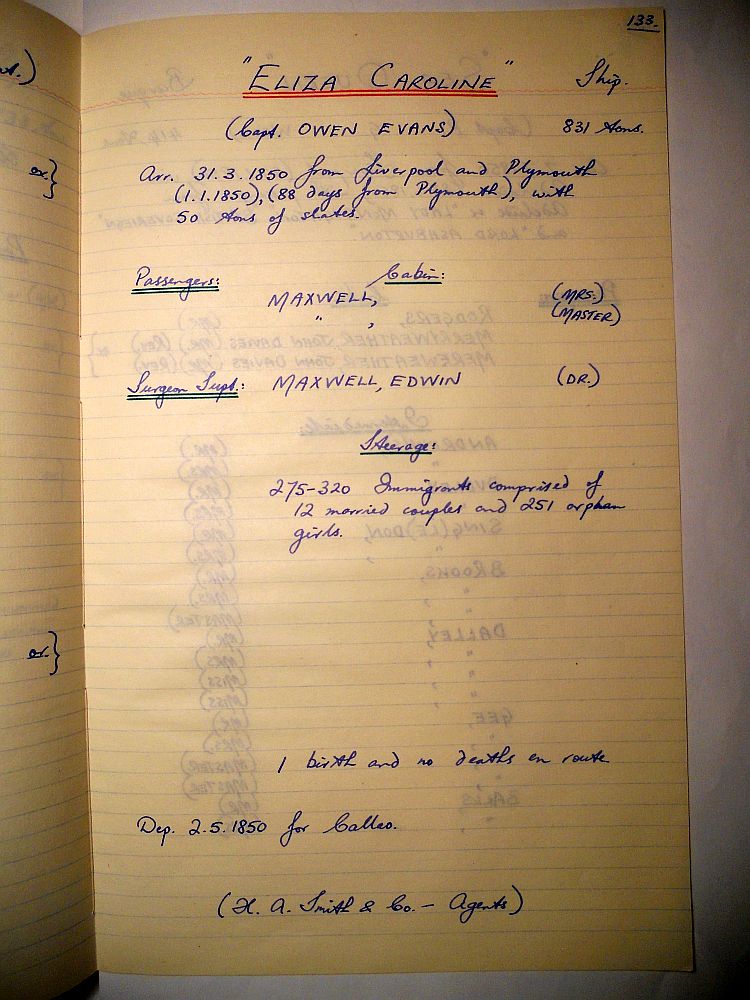 133.
"ELIZA CAROLINE" Ship.
(Capt. OWEN EVANS) 831 tons.
Arr. 31.3.1850 from Liverpool and Plymouth
(1.1.1850), (88 days from Plymouth), with
50 tons of slates.
Passengers: Cabin:
MAXWELL, (MRS.)
" , (MASTER)
Surgeon Supt.: MAXWELL, EDWIN (DR.)
Steerage:
275-320 Immigrants comprised of
12 married couples and 251 orphan
girls.
1 birth and no deaths en route
Dep. 2.5.1850 for Callao.
(H. A. Smith & Co. - Agents)
or.}